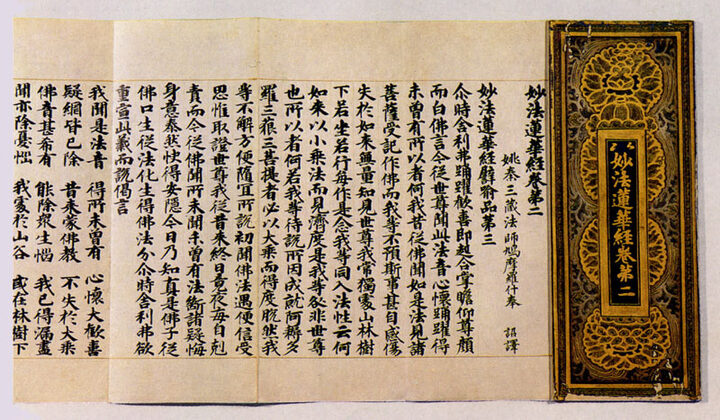 妙法蓮華經卷第二
妙法蓮華經卷第二
姚秦三藏法師鳩摩羅什奉 詔譯
妙法蓮華經譬喻品第三
尒時舍利弗踊躍歡喜即起合掌瞻仰尊顏
而白佛言今從世尊聞此法音心懷踊躍得
未曾有所以者何我昔從佛聞如是法見諸
菩薩受記作佛而我等不預斯事甚自感傷
失於如來無量知見世尊我常獨處山林樹
下若坐若行每作是念我等同入法性云何
如來以小乘法而見濟度是我等咎非世尊
也所以者何若我等待說所因成就阿耨多
羅三藐三菩提者必以大乘而得度脫然我
等不解方便隨宜所說初聞佛法遇便信受
思惟取證世尊我從昔來終日竟夜每自剋
責而今從佛聞所未聞未曾有法斷諸疑悔
身意泰然快得安隱今日乃知真是佛子從
佛口生從法化生得佛法分尒時舍利弗欲
重宣此義而說偈言
我聞是法音 得所未曾有 心懷大歡喜
疑網皆已除 昔來蒙佛教 不失於大乘
佛音甚希有 能除衆生惱 我已得漏盡
聞亦除憂惱 我處於山谷 或在林樹下